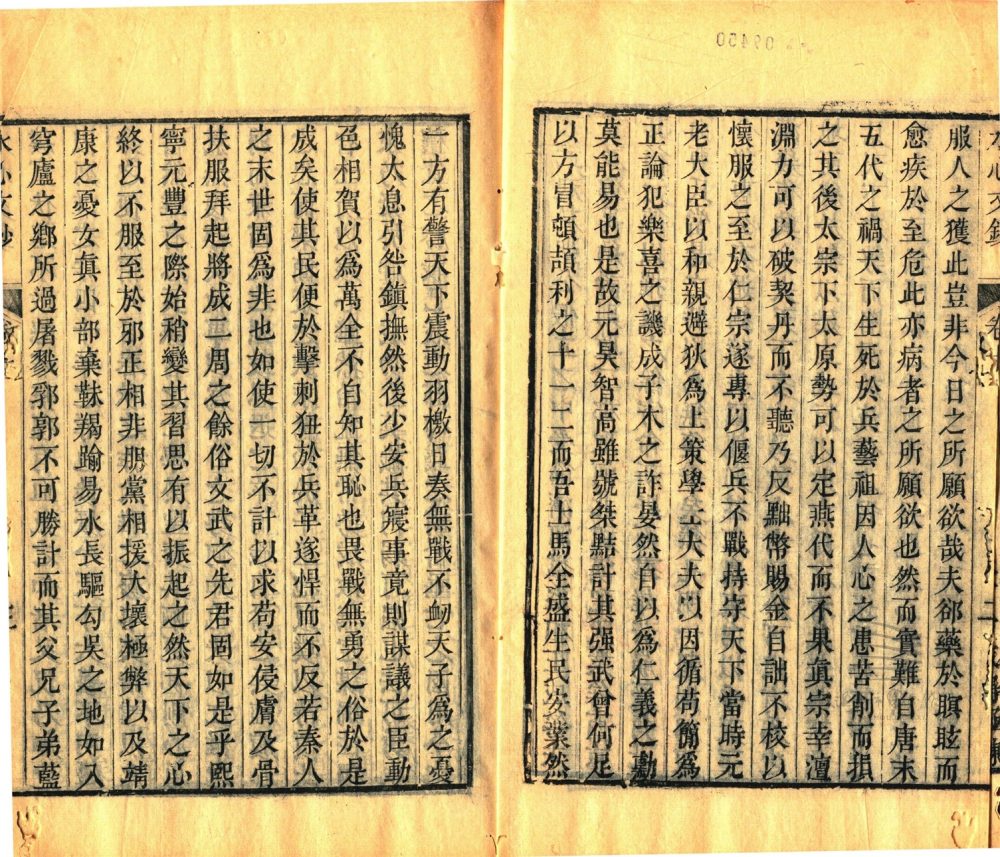 服人之獲此豈非今日之所願欲哉夫郤藥於瞑眩而
愈疾於至危此亦病者之所願欲也然而實難自唐末
五代之禍天下生死於兵藝祖因人心之患苦創而損
之其後太宗下太原勢可以定燕代而不果眞宗幸澶
淵力可以破契丹而不聽乃反黜幣賜金自詘不校以
懷服之至於仁宗遂專以偃兵不戰持守天下當時元
老大臣以和親避狄爲上策學士大夫以因循苟簡爲
正論犯樂喜之譏成子木之詐晏然自以爲仁義之勳
莫能易也是故元昊智高雖號桀黠計其强武曾何足
以方冒頓頡利之十一二而吾士馬全盛生民安業然
一方有警天下震動羽檄日奏無戰不衂天子爲之憂
愧太息引咎鎭撫然後少安兵寢事竟則謀議之臣動
色相賀以爲萬全不自知其恥也畏戰無勇之俗於是
成矣使其民便於擊刺狃於兵革遂悍而不反若秦人
之末世固爲非也如使一切不計以求苟安侵膚及骨
扶服拜起將成二周之餘俗文武之先君固如是乎熙
寧元豐之際始稍變其習思有以振起之然天下之心
終以不服至於邪正相非朋黨相援大壞極弊以及靖
康之憂女眞小部棄靺羯踰易水長驅勾吳之地如入
穹廬之鄕所過屠戮郛郭不可勝計而其父兄子弟藍
水心文鈔